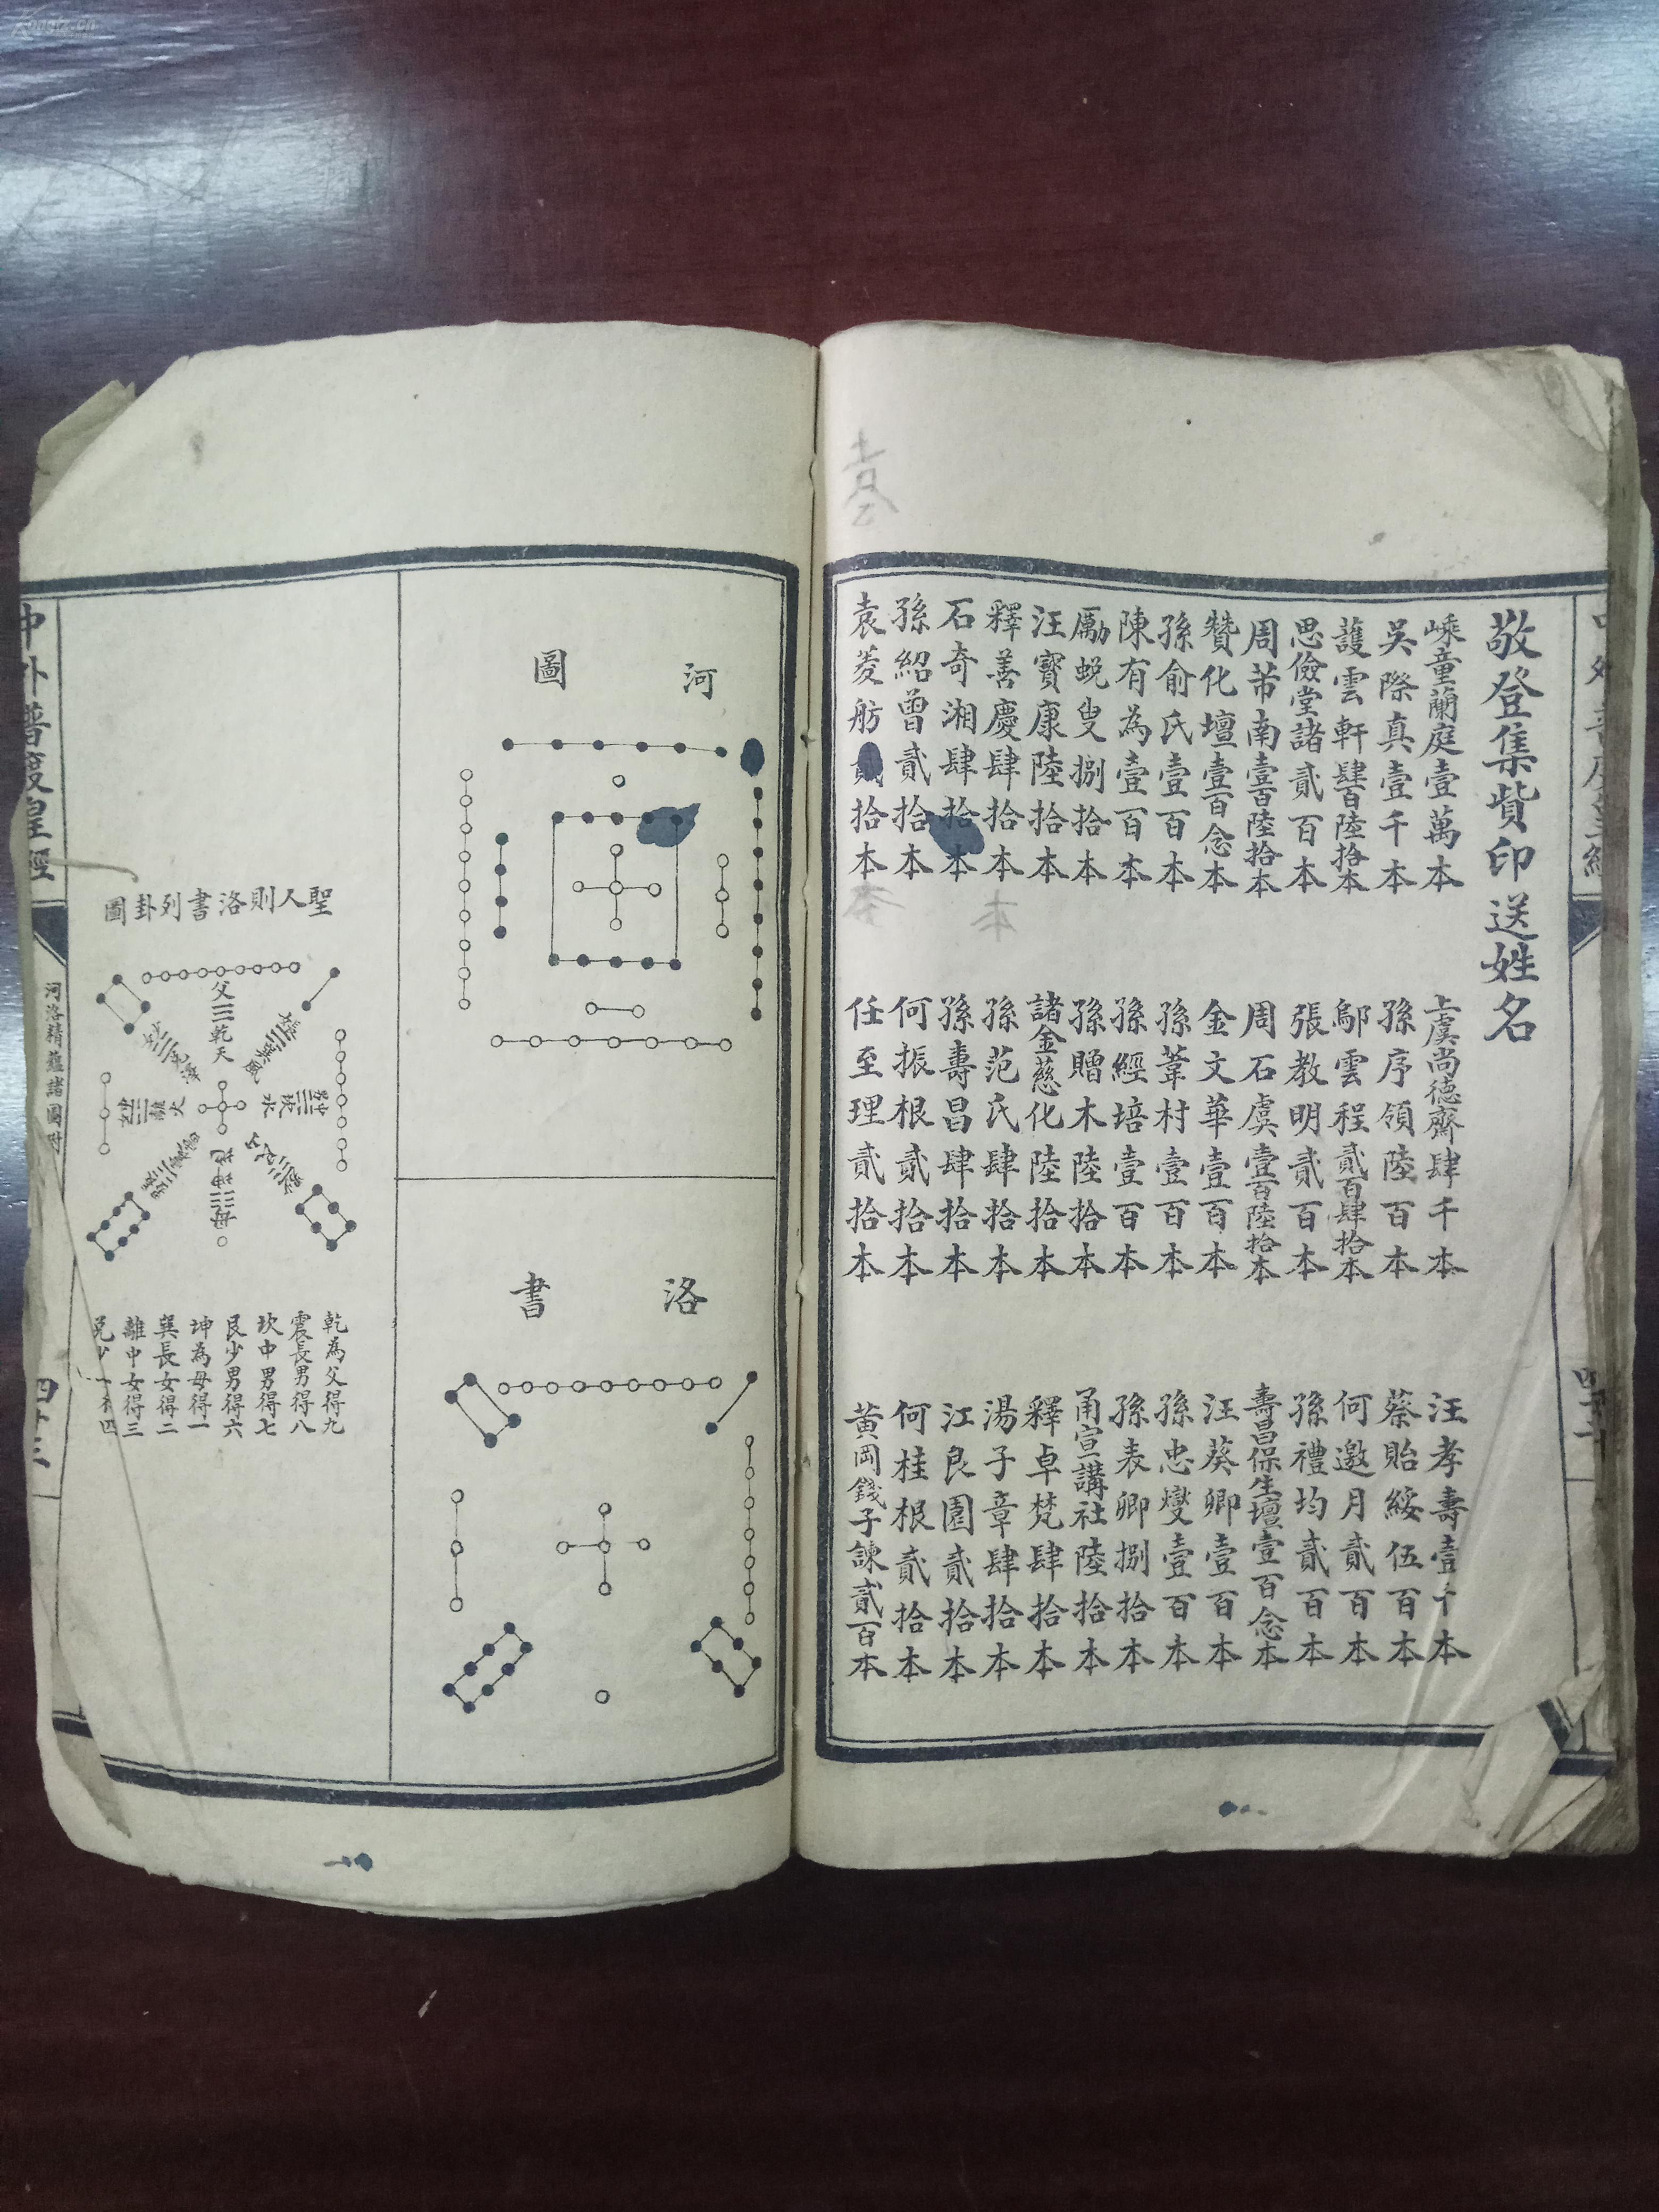 敬登集貲印送姓名
嵊童蘭庭壹萬本
吳際真壹千本
護雲軒肆百陸拾本
思儉堂諸貳百本
周芾南壹百陸拾本
贊化壇壹百念本
孫俞氏壹百本
陳有為壹百本
勵蛻叟捌拾本
汪寶康陸拾本
釋善慶肆拾本
石奇湘肆拾本
孫紹曾貳拾本
袁菱舫貳拾本
上虞尚德齋肆千本
孫序領陸百本
鄔雲程貳百肆拾本
張教明貳百本
周石虞壹百陸拾本
金文華壹百本
孫葦村壹百本
孫經培壹百本
孫贈木陸拾本
諸金慈化陸拾本
孫范氏肆拾本
孫壽昌肆拾本
何振根貳拾本
任至理貳拾本
汪孝壽壹千本
蔡貽綏伍百本
何邀月貳百本
孫禮均貳百本
壽昌保生壇壹百念本
汪葵卿壹百本
孫忠燮壹百本
孫表卿捌拾本
甬宣講社陸拾本
釋卓梵肆拾本
湯子章肆拾本
江良園貳拾本
何桂根貳拾本
黃岡錢子諫貳百本
河圖
洛書
聖人則洛書列卦圖
父 乾 天
坎 水
離 火
母 坤 地
乾為父得九
震長男得八
坎中男得七
艮少男得六
坤為母得一
巽長女得二
離中女得三
兌少 得四
中外普度皇經
河洛精蘊諸圖附
四十三